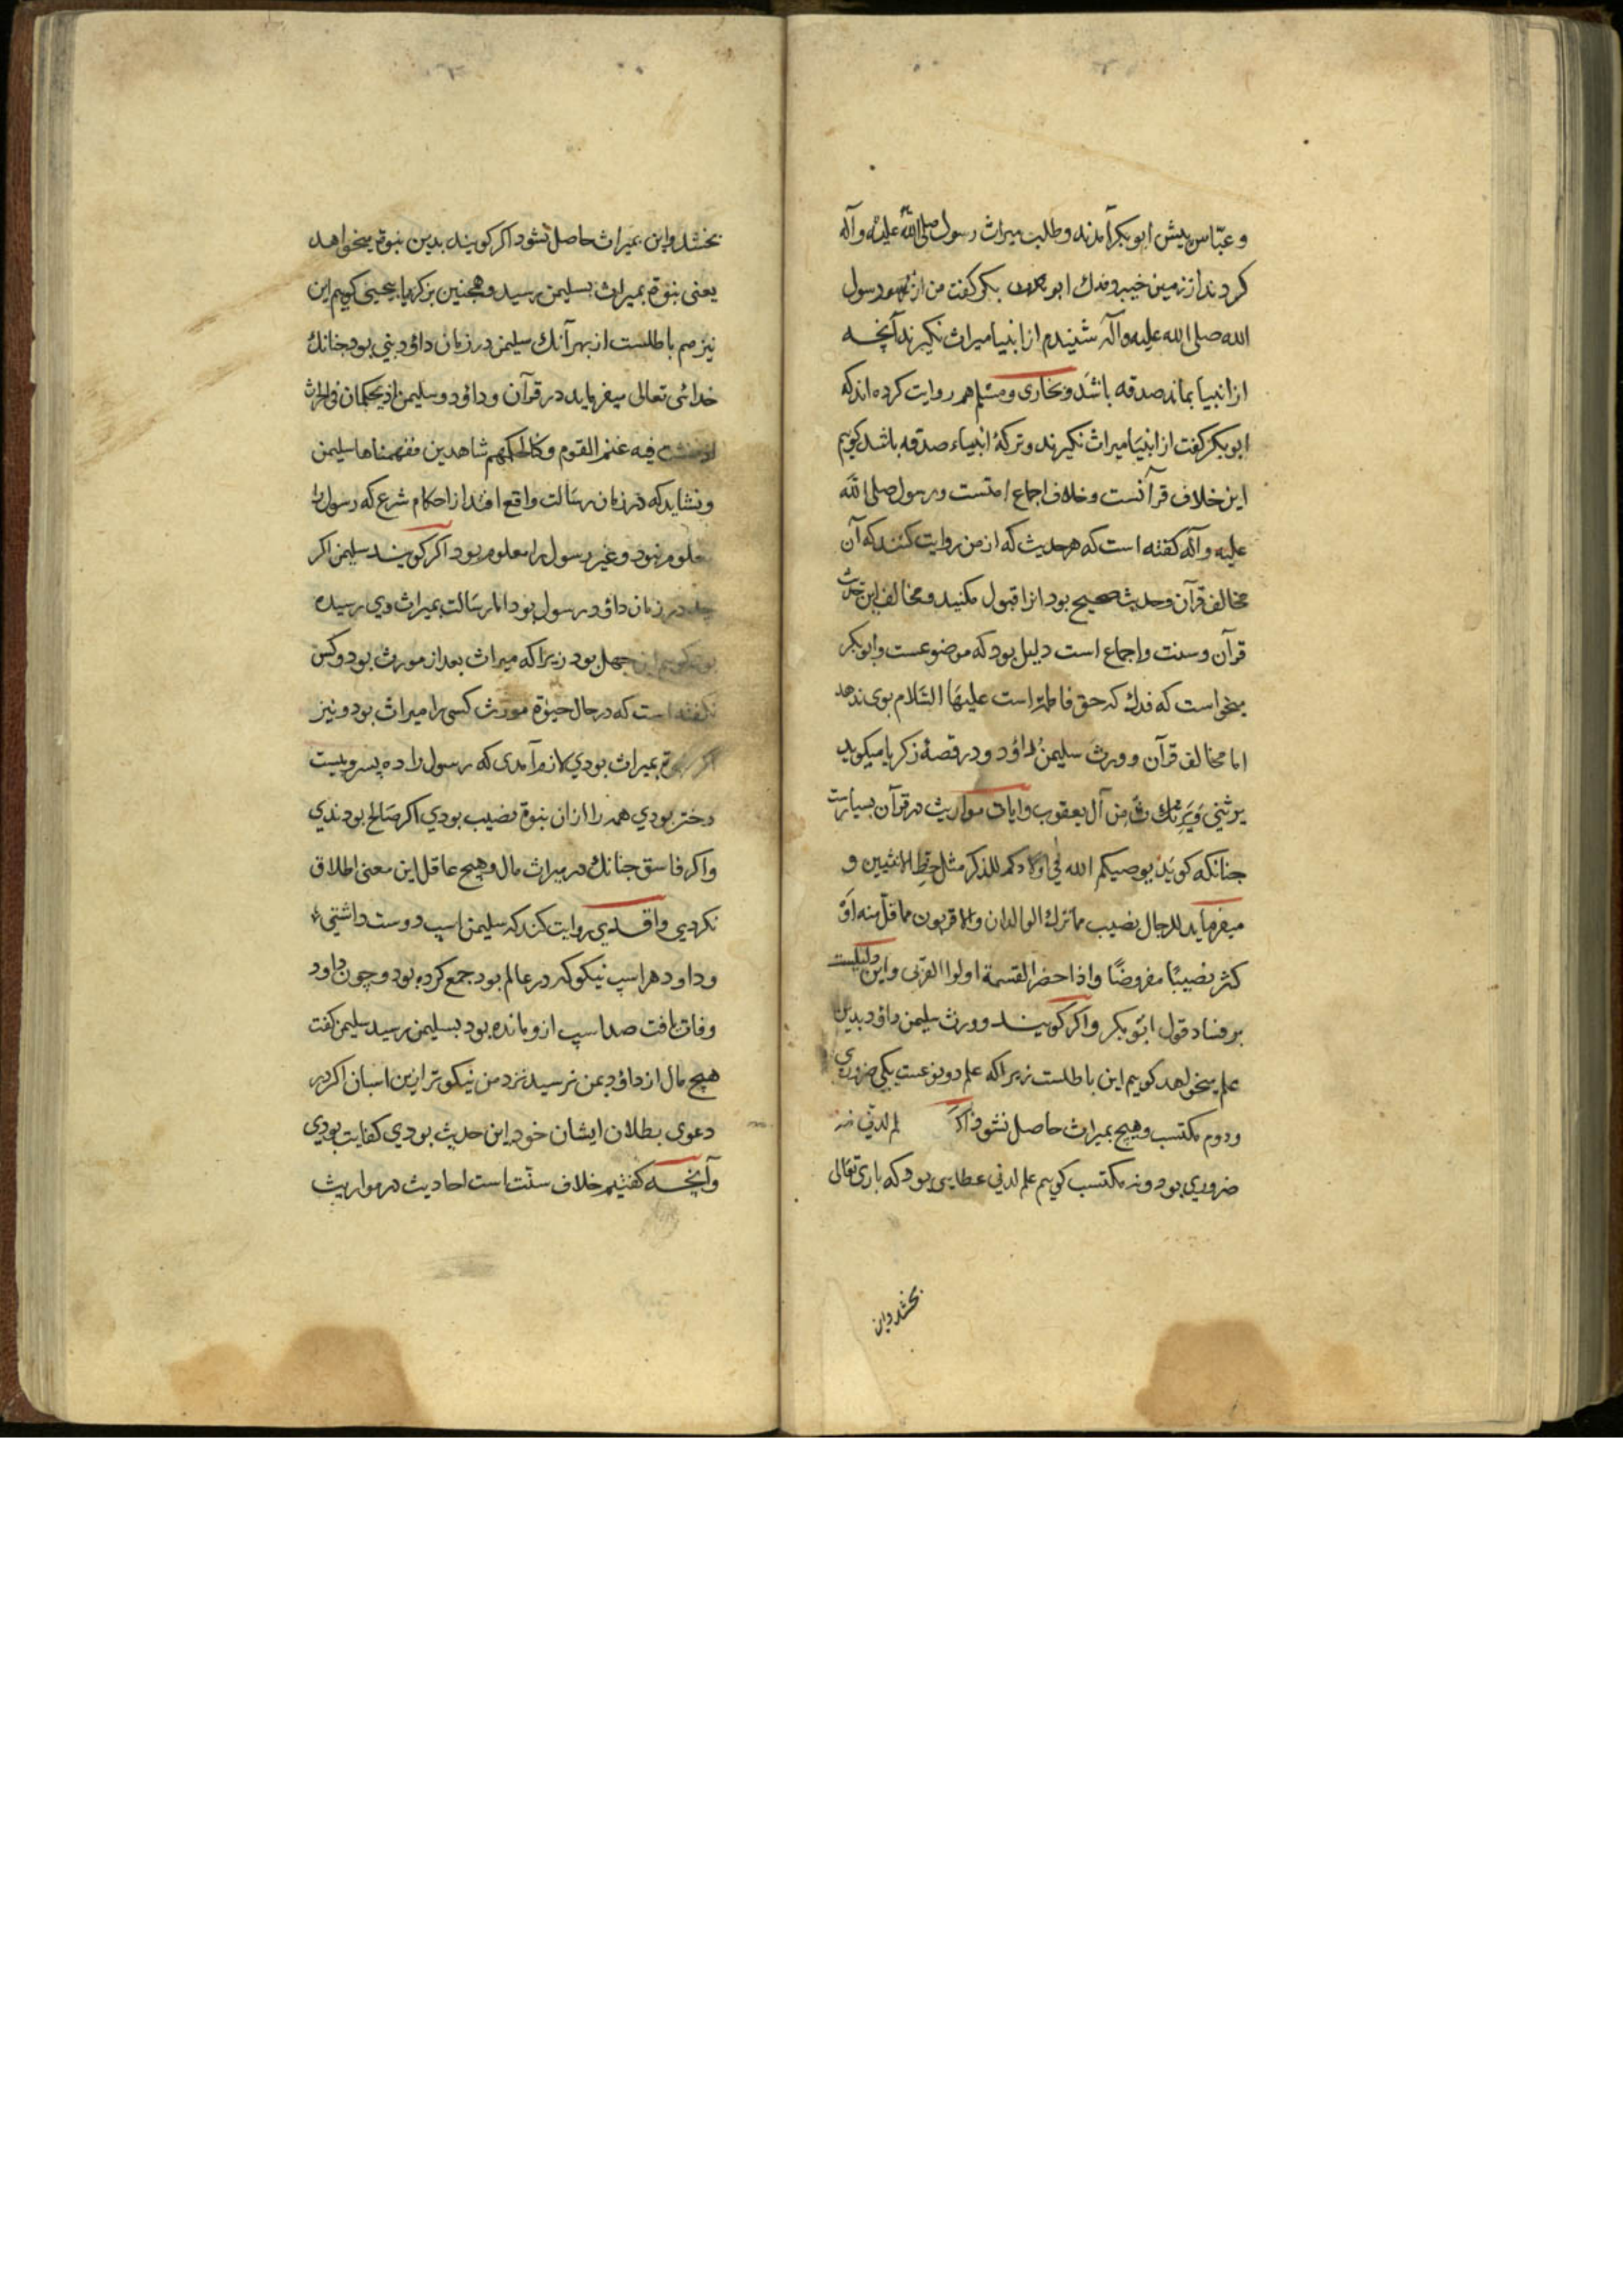 و عبّاس پیش ابوبکر آمدند و طلب میراث رسول صلی الله علیه و آله
کردند از زمین خیبر و فدك ابو بکر کفت من از رسول
الله صلی الله علیه و آله شنیدم از انبیا میراث نکیرند آنچه
از انبیا بماند صدقه باشد و بخاری و مسلم هم روایت کرده اند که
ابوبکر کفت از انبیا میراث نکیرند و ترکهٔ انبیاء صدقه باشد کویم
این خلاف قرآنست و خلاف اجماع امتست و رسول صلی الله
علیه و آله کفته است که هر حدیث که از من روایت کنند که آن
مخالف قرآن و حدیث صحیح بود انرا قبول مکنید و مخالف این حدیث
قرآن و سنت و اجماع است دلیل بود که موضوعست و ابوبکر
میخواست که فدك که حق فاطمه است علیها السّلام بوی ندهد
اما مخالف قرآن و ورث سلیمن داؤد و در قصهٔ زکریا میکوید
یرثنی وَیَرِث من آل یعقوب و ایات مواریث در قرآن بسیارست
جنانکه کوید یوصیکم الله فی اولادکم للذکر مثل حظ الانثیین و
میفرماید للرجال نصیب مما ترك الوالدان والاقربون مما قلّ منه اَوْ
کثر نصیبًا مفروضًا واذا حضر القسمة اولوا القربی و این دلیلست
بر فساد قول ابوبکر و اکر کویند و ورث سلیمن داؤد بدین
علم میخواهد کویم این باطلست زیرا که علم دو نوعست یکی ضروری
ودوم مکتسب و هیچ بمیراث حاصل نشود اکر لم لدنّی نه
ضروری بود و نه مکتسب کویم علم لدنی عطایی بود که باری تعالی
بخشد و این
بخشد و این بمیراث حاصل نشود اکر کویند بدین نبوة میخواهد
یعنی نبوة بمیراث بسلیمن رسید و همجنین بزکریا بیحیی کویم این
نیز هم باطلست از بهر آنك سلیمن در زمان داؤد نبی بود جنانك
خدائی تعالی میفرماید در قرآن و داؤد و سلیمن اذ یحکمان فی الحرث
اذ نفشت فیه غنم القوم و کنا لحکمهم شاهدین ففهمناها سلیمن
و نشاید که در زمان رسالت واقع افتد از احکام شرع که رسول را
معلوم نبود و غیر رسول را معلوم بود اکر کویند سلیمن اکر
چه در زمان داؤد رسول بود اما رسالت بمیراث وی رسیده
بود کویم این جهل بود زیرا که میراث بعد از مورث بود و کس
نکفته است که در حال حیوة مورث کسی را میراث بود و نیز
اکر نبوة بمیراث بودی لازم آمدی که رسول را ده پسر و بیست
دختر بودی همه را از ان نبوة نصیب بودی اکر صالح بودندی
و اکر فاسق جنانك در میراث مال و هیچ عاقل این معنی اطلاق
نکردی واقدی روایت کند که سلیمن اسپ دوست داشتی
و داود هر اسپ نیکو که در عالم بود جمع کرده بود و چون داود
وفات یافت صد اسپ ازو مانده بود بسلیمن رسید سلیمن کفت
هیچ مال از داؤد بمن نرسید نزد من نیکوتر ازین اسبان اکر در
دعوی بطلان ایشان خود این حدیث بودی کفایت بودی
و آنچه کفتیم خلاف سنّت است احادیث در مواریث